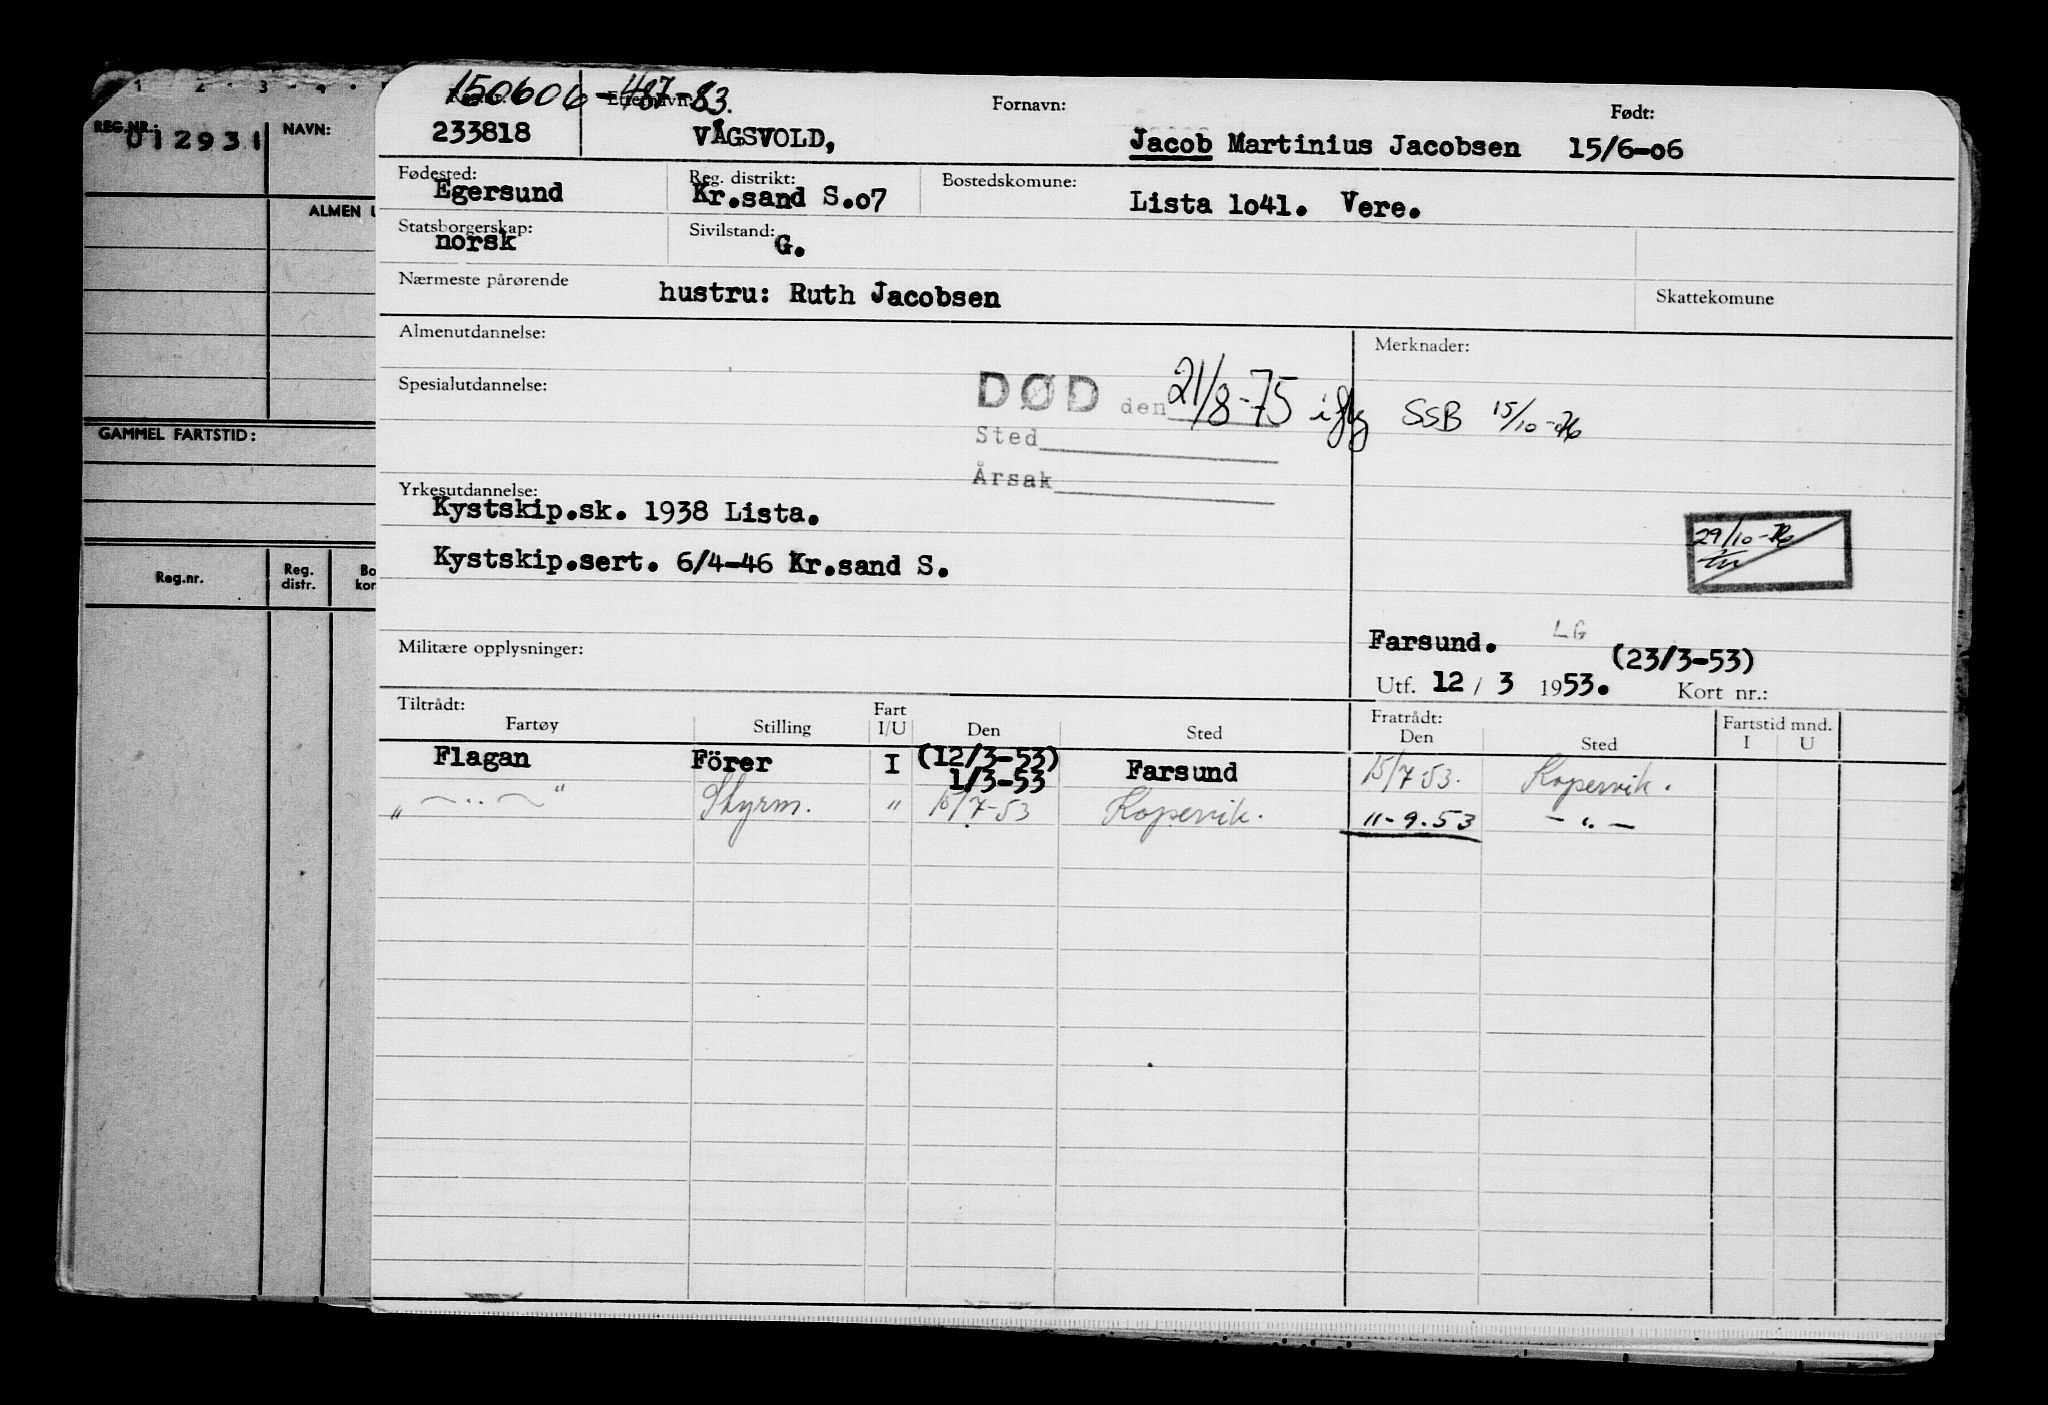 1 2 3 4
REG.NR.: NAVN:
012931
ALMEN
GAMMEL FARTSTID:
Reg.nr. Reg. distr. Bo kon
150606-487-83.
Etternavn: Fornavn: Født:
233818 VÅGSVOLD, Jacob Martinius Jacobsen 15/6-06
Fødested: Reg. distrikt: Bostedskomune:
Egersund Kr.sand S.o7 Lista 1o41. Vere.
Statsborgerskap: Sivilstand:
norsk G.
Nærmeste pårørende hustru: Ruth Jacobsen Skattekomune
Almenutdannelse: Merknader:
Spesialutdannelse:
DØD den 21/8-75 iflg SSB 15/10-76
Sted
Årsak
Yrkesutdannelse:
Kystskip.sk. 1938 Lista.
29/10-76
Kystskip.sert. 6/4-46 Kr.sand S.
Militære opplysninger:
Farsund. LG (23/3-53)
Utf. 12 / 3 1953. Kort nr.:
Tiltrådt: Fratrådt: Fartstid mnd.
Fartøy Stilling Fart I/U Den Sted Den Sted I U
Flagan Förer I (12/3-53) 1/3-53 Farsund 15/7-53. Kopervik.
„ — " — " Styrm. " 15/7-53 Kopervik. 11-9.53 — " —